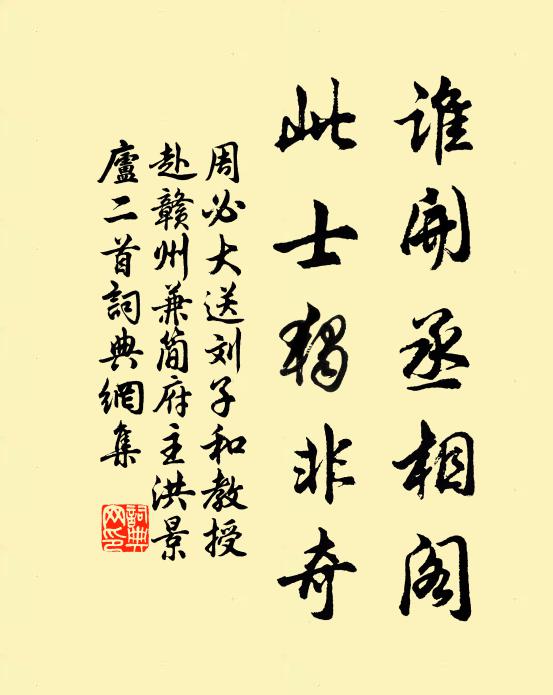 谁開丞相阁
此士獨非奇
周必大送刘子和教授
赴赣州兼简府主洪景
廬二首詞典網集
詞典
网印